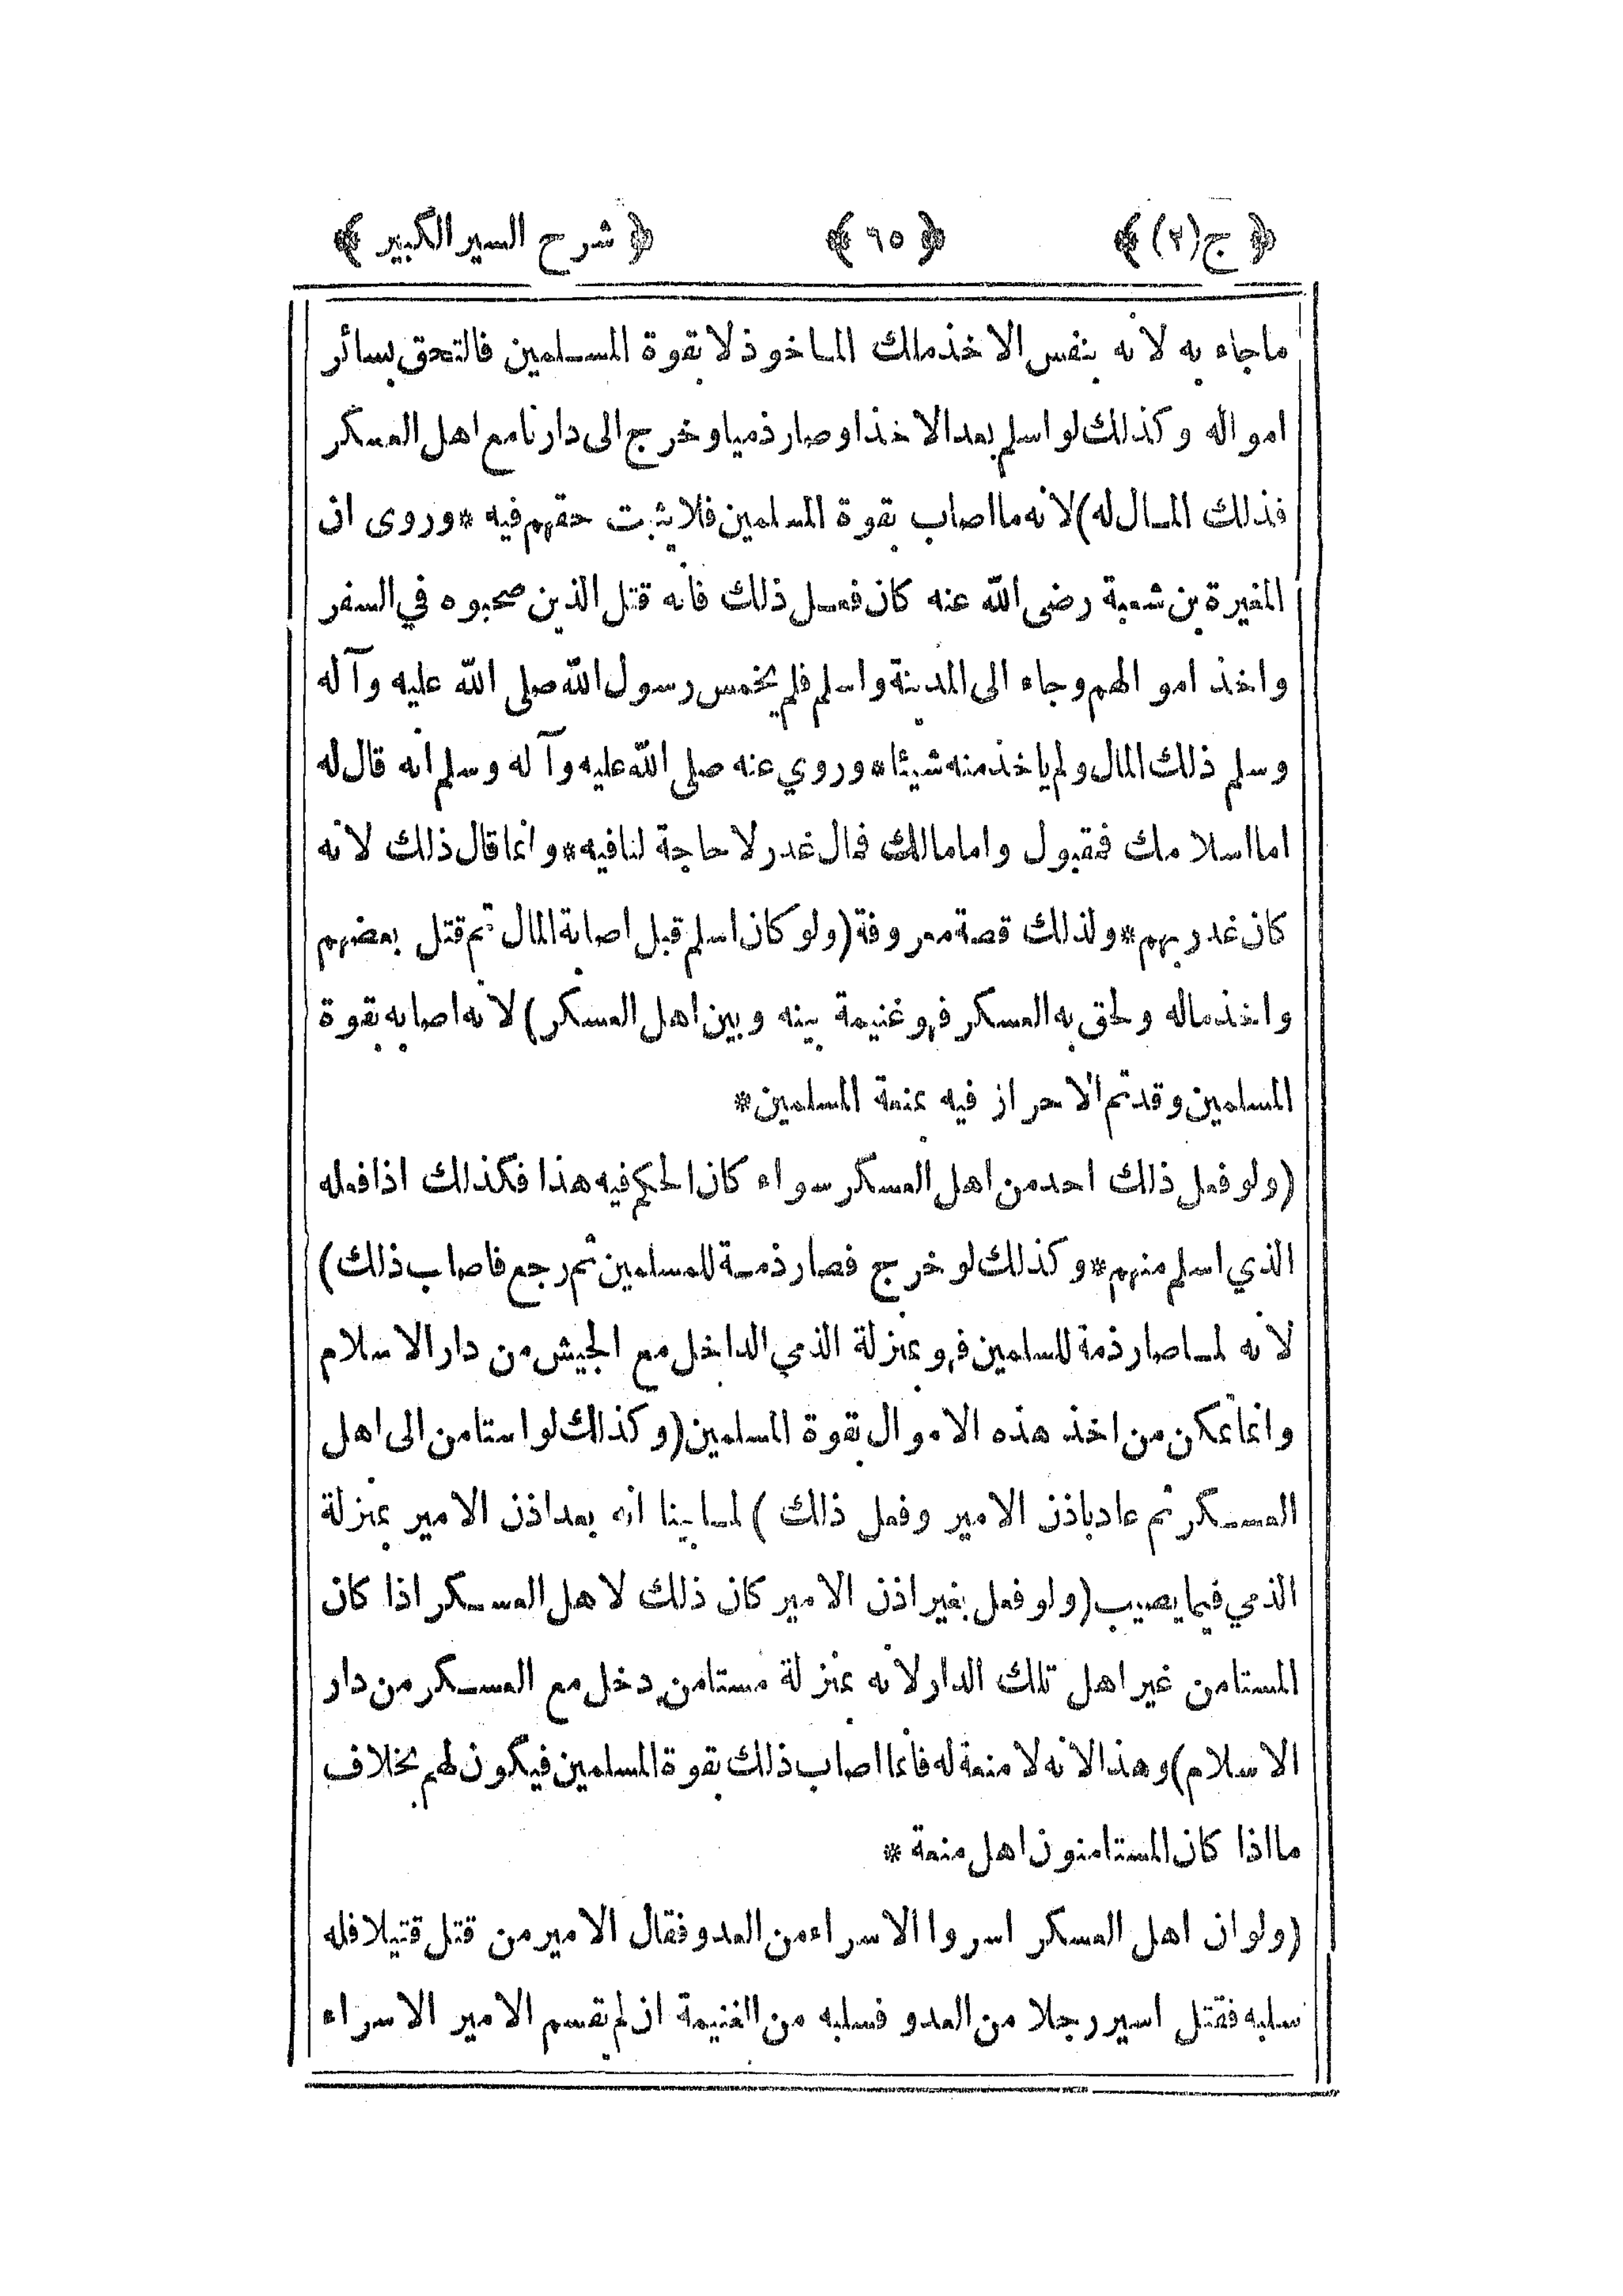 ﴿ ج(٢) ﴾ ﴿ ٦٥ ﴾ ﴿ شرح السير الكبير ﴾
ماجاء به لانه بنفس الاخذ ملك الماخوذ لا بقوة المسلمين فالتحق بسائر
امواله وكذلك لو اسلم بعد الاخذ او صار ذميا وخرج الى دارنا مع اهل العسكر
فذلك المال له) لانه ما اصاب بقوة المسلمين فلا يثبت حقهم فيه * وروى ان
المغيرة بن شعبة رضى الله عنه كان فعل ذلك فانه قتل الذين صحبوه في السفر
واخذ اموالهم وجاء الى المدينة واسلم فلم يخمس رسول الله صلى الله عليه وآله
وسلم ذلك المال ولم ياخذ منه شيئا * وروي عنه صلى الله عليه وآله وسلم انه قال له
اما اسلامك فمقبول واما مالك فمال غدر لا حاجة لنا فيه * وانما قال ذلك لانه
كان غدر بهم * ولذلك قصة معروفة (ولو كان اسلم قبل اصابة المال ثم قتل بعضهم
واخذ ماله ولحق به العسكر فهو غنيمة بينه وبين اهل العسكر) لانه اصابه بقوة
المسلمين وقد تم الاحراز فيه بمنعة المسلمين *
(ولو فعل ذلك احد من اهل العسكر سواء كان الحكم فيه هذا فكذلك اذا فعله
الذي اسلم منهم * وكذلك لو خرج فصار ذمة للمسلمين ثم رجع فاصاب ذلك)
لانه لما صار ذمة للمسلمين فهو بمنزلة الذمي الداخل مع الجيش من دار الاسلام
وانما تمكن من اخذ هذه الاموال بقوة المسلمين (وكذلك لو استامن الى اهل
العسكر ثم عاد باذن الامير وفعل ذلك) لما بينا انه بعد اذن الامير بمنزلة
الذمي فيما يصيب (ولو فعل بغير اذن الامير كان ذلك لاهل العسكر اذا كان
المستامن غير اهل تلك الدار لانه بمنزلة مستامن دخل مع العسكر من دار
الاسلام) وهذا لانه لا منعة له فانما اصاب ذلك بقوة المسلمين فيكون لهم بخلاف
ما اذا كان المستامنون اهل منعة *
(ولو ان اهل العسكر اسروا الاسراء من العدو فقال الامير من قتل قتيلا فله
سلبه فقتل اسير رجلا من العدو فسلبه من الغنيمة ان لم يقسم الامير الاسراء